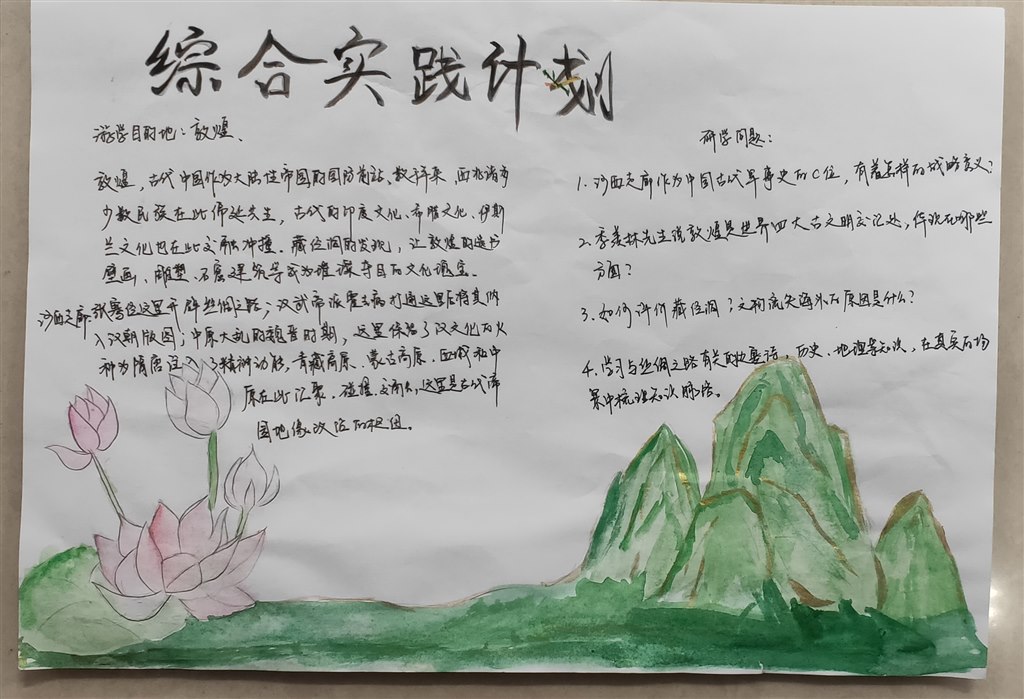 综合实践计划
游学目的地：敦煌、
敦煌，古代中国作为大陆性帝国的国防前站、数千年来，西北诸多
少数民族在此伸延共生，古代的印度文化、希腊文化、伊斯
兰文化也在此交融冲撞、藏经洞的发现，让敦煌的遗书
壁画、雕塑、石窟建筑等成为璀璨夺目的文化瑰宝。
河西走廊：张骞经这里开辟丝绸之路；汉武帝派霍去病打通这里后将其纳
入汉朝版图；中原大乱的魏晋时期，这里保留了汉文化的火
种为隋唐注入了精神动能，青藏高原、蒙古高原、西域和中
原在此汇聚、碰撞、交流，这里是古代
国地缘政治的枢纽。
研学问题：
1. 河西走廊作为中国古代军事史的C位，有着怎样的战略意义？
2. 季羡林先生说敦煌是世界四大古文明交汇处，体现在哪些
方面？
3. 如何评价藏经洞？文物流失海外的原因是什么？
4. 学习与丝绸之路有关的、历史、地理等知识，在真实的场
景中梳理知识脉络。